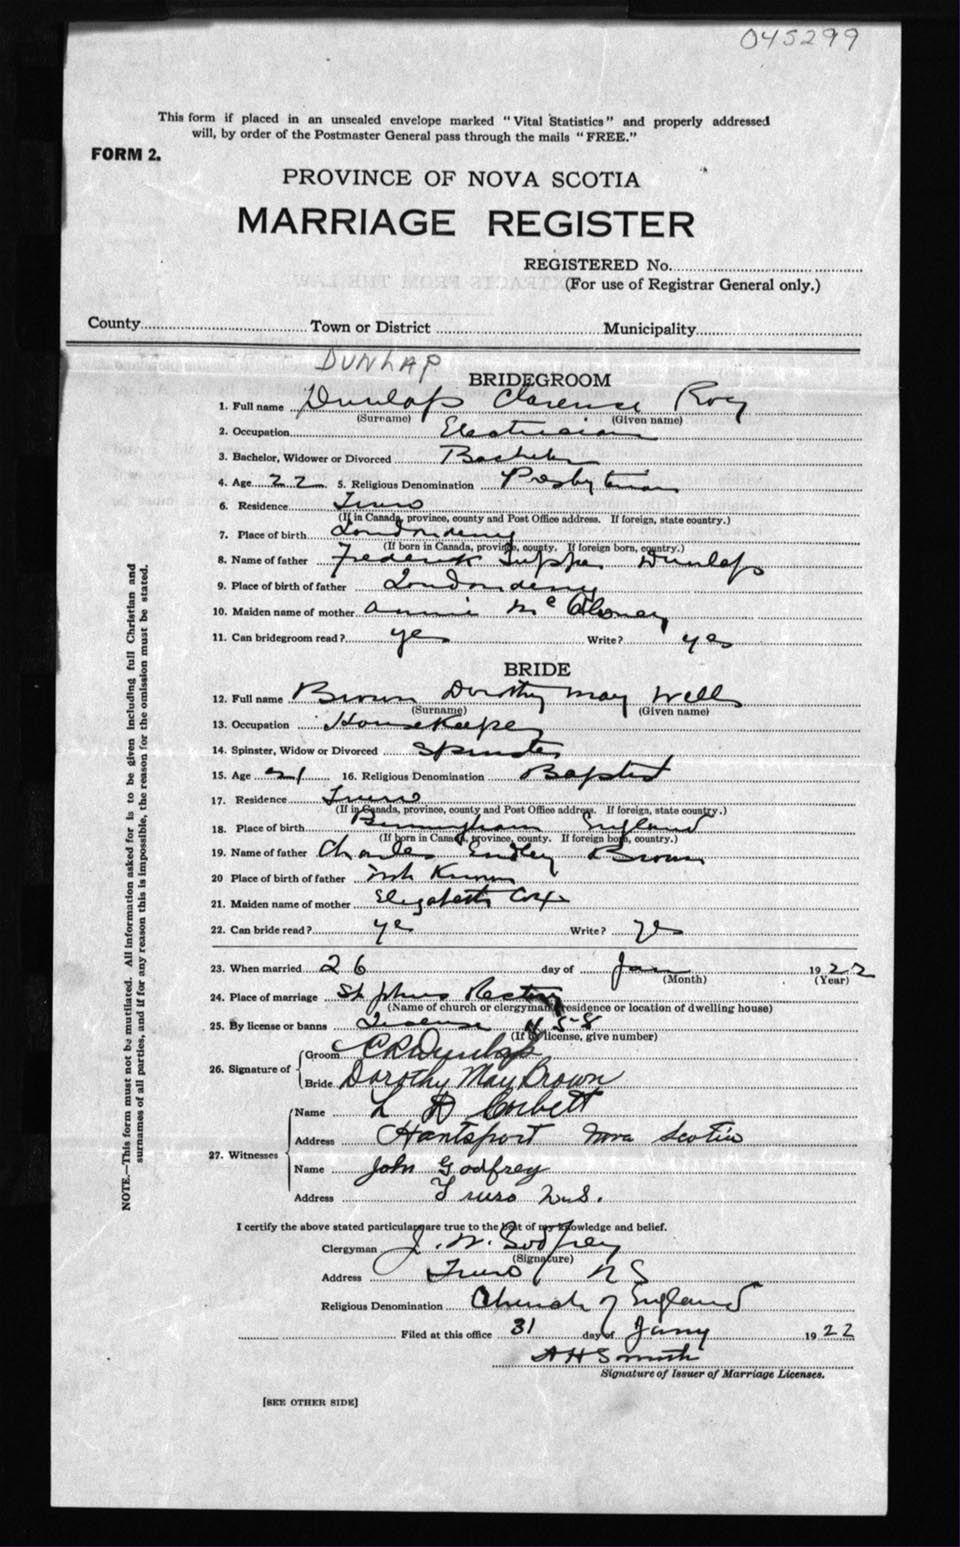 045299
This form if placed in an unsealed envelope marked "Vital Statistics" and properly addressed
will, by order of the Postmaster General pass through the mails "FREE."
FORM 2.
PROVINCE OF NOVA SCOTIA
MARRIAGE REGISTER
REGISTERED No.
(For use of Registrar General only.)
County Town or District Municipality
DUNLAP
BRIDEGROOM
1. Full name Dunlap Clarence Roy
(Surname) (Given name)
2. Occupation Electrician
3. Bachelor, Widower or Divorced Bachelor
4. Age 22 5. Religious Denomination Presbyterian
6. Residence Truro
(If in Canada, province, county and Post Office address. If foreign, state country.)
7. Place of birth Londonderry
(If born in Canada, province, county. If foreign born, country.)
8. Name of father Frederick Tupper Dunlap
9. Place of birth of father Londonderry
10. Maiden name of mother Annie
11. Can bridegroom read? yes Write? yes
BRIDE
12. Full name Brown Dorothy May Wells
(Surname) (Given name)
13. Occupation Housekeeper
14. Spinster, Widow or Divorced Spinster
15. Age 21 16. Religious Denomination Baptist
17. Residence Truro
(If in Canada, province, county and Post Office address. If foreign, state country.)
18. Place of birth Birmingham England
(If born in Canada, province, county. If foreign born, country.)
19. Name of father Charles Brown
20 Place of birth of father not known
21. Maiden name of mother Elizabeth Cox
22. Can bride read? yes Write? yes
23. When married 26 day of Jan 1922
(Month) (Year)
24. Place of marriage St Johns Rectory
(Name of church or clergyman residence or location of dwelling house)
25. By license or banns License
(If by license, give number)
26. Signature of Groom C R Dunlap
Bride Dorothy May Brown
27. Witnesses Name L D Corbett
Address Hantsport Nova Scotia
Name John Godfrey
Address Truro N.S.
I certify the above stated particulars are true to the best of my knowledge and belief.
Clergyman J. W. Godfrey
(Signature)
Address Truro N S
Religious Denomination Church of England
Filed at this office 31 day of Jany 1922
A H Smith
Signature of Issuer of Marriage Licenses.
[SEE OTHER SIDE]
NOTE.—This form must not be mutilated. All information asked for is to be given including full Christian and
surnames of all parties, and if for any reason this is impossible, the reason for the omission must be stated.